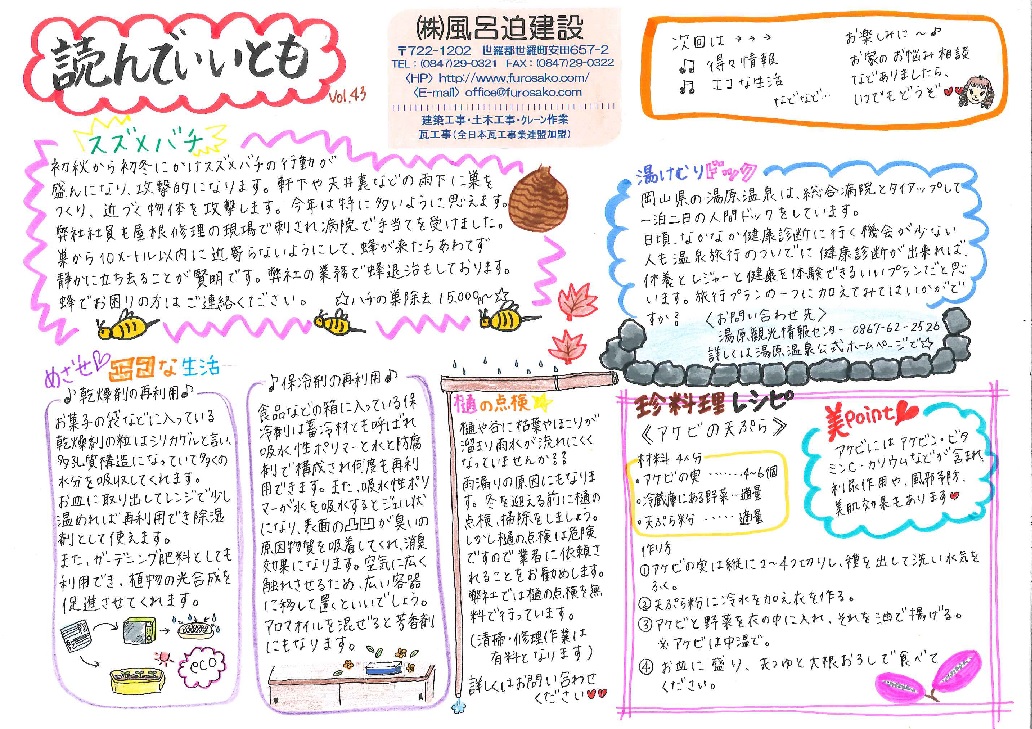 読んでいいとも
Vol.43
(株)風呂迫建設
〒722-1202 世羅郡世羅町安田657-2
TEL:(0847)29-0321 FAX:(0847)29-0322
〈HP〉http://www.furosako.com/
〈E-mail〉office@furosako.com
建築工事・土木工事・クレーン作業
瓦工事(全日本瓦工事業連盟加盟)
次回は→→→
♫ 得々情報
♫ エコな生活
などなど…
お楽しみに〜♪
お家のお悩み相談
などありましたら、
いつでもどうぞ♥♥
スズメバチ
初秋から初冬にかけスズメバチの行動が
盛んになり、攻撃的になります。軒下や天井裏などの雨下に巣を
つくり、近づく物体を攻撃します。今年は特に多いように思えます。
弊社社員も屋根修理の現場で刺され病院で手当てを受けました。
巣から10メートル以内に近寄らないようにして、蜂が来たらあわてず
静かに立ち去ることが賢明です。弊社の業務で蜂退治もしております。
蜂でお困りの方はご連絡ください。 ☆ハチの巣除去 15,000円〜☆
湯けむりドック
岡山県の湯原温泉は、総合病院とタイアップして
一泊二日の人間ドックをしています。
日頃、なかなか健康診断に行く機会が少ない
人も温泉旅行のついでに健康診断が出来れば、
休養とレジャーと健康を体験できるいいプランだと思
います。旅行プランの一つに加えてみてはいかがで
すか?
〈お問い合わせ先〉
湯原観光情報センター 0867-62-2526
詳しくは湯原温泉公式ホームページで☆
めざせ♡エコな生活
♪乾燥剤の再利用♪
お菓子の袋などに入っている
乾燥剤の粒はシリカゲルと言い、
多孔質構造になっていて多くの
水分を吸収してくれます。
お皿に取り出してレンジで少し
温めれば再利用でき除湿
剤として使えます。
また、ガーデニング肥料としても
利用でき、植物の光合成を
促進させてくれます。
eco
♪保冷剤の再利用♪
食品などの箱に入っている保
冷剤は蓄冷材とも呼ばれ
吸水性ポリマーと水と防腐
剤で構成され何度も再利
用できます。また、吸水性ポリ
マーが水を吸水するとジェル状
になり、表面の凸凹が臭いの
原因物質を吸着してくれ、消臭
効果になります。空気に広く
触れさせるため、広い容器
に移して置くといいでしょう。
アロマオイルを混ぜると芳香剤
にもなります。
樋の点検
樋や谷に枯葉やほこりが
溜まり雨水が流れにくく
なっていませんか??
雨漏りの原因にもなりま
す。冬を迎える前に樋の
点検、掃除をしましょう。
しかし樋の点検は危険
ですので業者に依頼さ
れることをお勧めします。
弊社では樋の点検を無
料で行っています。
(清掃・修理作業は
有料となります)
詳しくはお問い合わせ
ください♥♥
珍料理レシピ
《アケビの天ぷら》
材料 4人分
・アケビの実 ……4〜6個
・冷蔵庫にある野菜…適量
・天ぷら粉 ……適量
美Point♥
アケビにはアケビン・ビタ
ミンC・カリウムなどが含まれ
利尿作用や、風邪予防、
美肌効果もあります♥
作り方
①アケビの実は縦に2〜4つ切りし、種を出して洗い水気を
ふく。
②天ぷら粉に冷水を加え衣を作る。
③アケビと野菜を衣の中に入れ、それを油で揚げる。
※アケビは中温で。
④お皿に盛り、天つゆと大根おろしで食べて
ください。